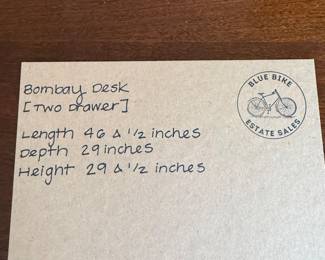 Bombay Desk
[Two Drawer]
Length 46 & 1/2 inches
Depth 29 inches
Height 29 & 1/2 inches
BLUE BIKE
ESTATE SALES